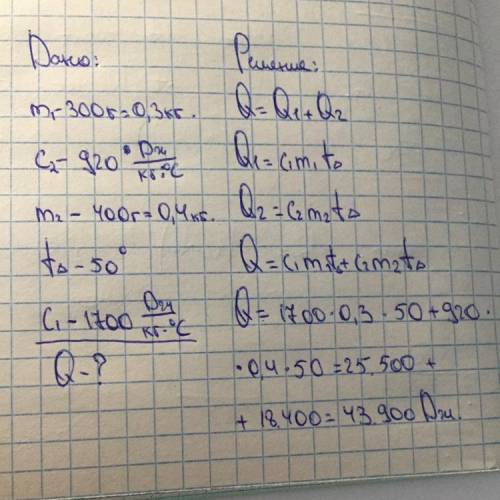 Дано:
m₁-300г=0,3кг.
c₂-920 Дж/кг·°C
m₂-400г=0,4кг.
t∆-50°
c₁-1700 Дж/кг·°C
Q-?
Решение:
Q=Q₁+Q₂
Q₁=c₁m₁t∆
Q₂=c₂m₂t∆
Q=c₁m₁t∆+c₂m₂t∆
Q=1700·0,3·50+920·
·0,4·50=25.500+
+18.400=43.900 Дж.